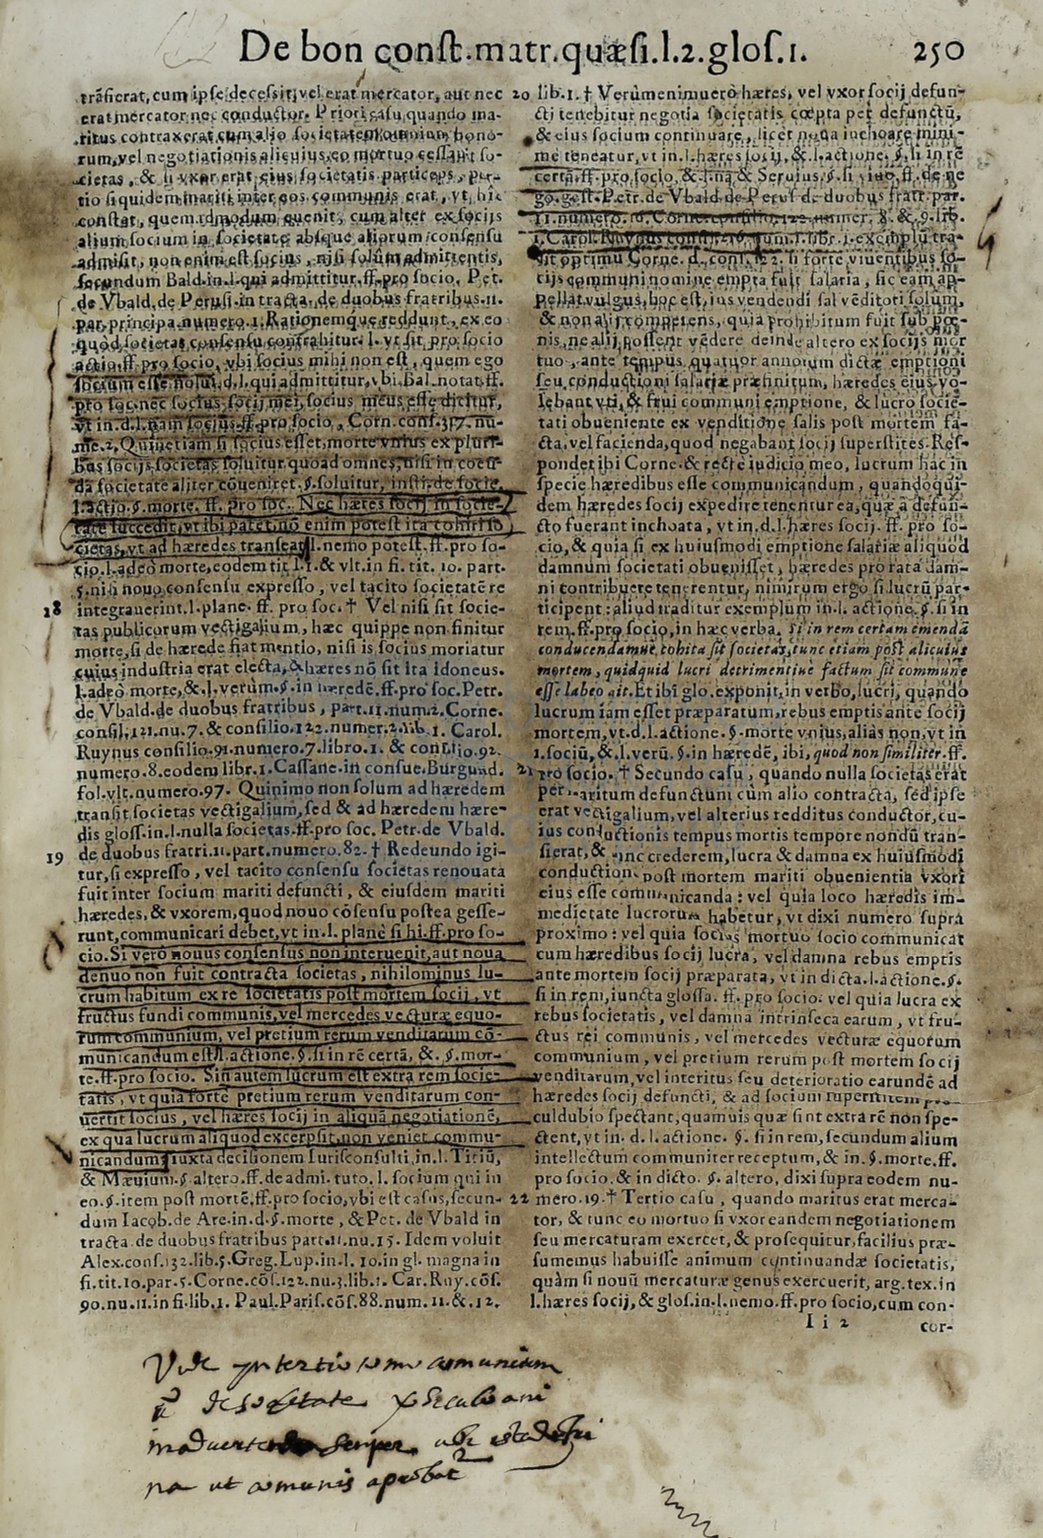 De bon const.matr.quæsi.l.2.glos.1. 250
trãsierat, cum ipse decessit, vel erat mercator, aut nec
erat mercator nec conductor. Priori casu, quando ma-
ritus contraxerat cum alio societatem omnium bono-
rum, vel negotiationis alicuius, eo mortuo cessauit so-
cietas, & si vxor erat eius societatis particeps, per-
tio siquidem mariti inter eos communis erat, vt hic
constat, quemadmodum euenit, cum alter ex socijs
alium socium in societate absque aliorum consensu
admisit, non enim est socius, nisi solum admittentis,
secundum Bald. in.l.qui admittitur.ff.pro socio. Pet.
de Vbald.de Perusi.in tracta.de duobus fratribus.11.
par.principa.numero.1.Rationemque reddunt, ex eo
quod societas consensu contrahitur.l. vt sit pro socio
actio.ff.pro socio, vbi socius mihi non est, quem ego
socium esse nolui.d.l.qui admittitur, vbi Bal.notat.ff.
pro soc.nec socius socij mei, socius meus esse dicitur,
vt in.d.l.nam socius.ff.pro socio, Corn.cons.317.nu-
me.2. Quinetiam si socius esset, morte vnius ex pluri-
bus socijs societas soluitur quoad omnes, nisi in coeũ-
da societate aliter cõuenit et.§.soluitur, insti.de socie.
l.actio.§.morte. ff. pro soc. Nec hæres socij in socie-
tate succedit, vt ibi patet, nõ enim potest ita contrahi so
cietas, vt ad hæredes transeat.l.nemo potest.ff.pro so-
cio.l.adeo morte, eodem tit.l.1.& vlt.in fi. tit. 10. part.
5.nisi nouo consensu expresso, vel tacito societatẽ re
18 integrauerint.l.plane. ff. pro soc.† Vel nisi sit socie-
tas publicorum vectigalium, hæc quippe non finitur
morte, si de hærede fiat mentio, nisi is socius moriatur
cuius industria erat electa, & hæres nõ sit ita idoneus.
l.adeo morte, &.l.verùm.§.in hæredẽ.ff.pro soc.Petr.
de Vbald.de duobus fratribus, part.11.num.2.Corne.
consil.121.nu.7.& consilio.122.numer.2.lib.1. Carol.
Ruynus consilio.91.numero.7.libro.1. & consilio.92.
numero.8.eodem libr.1.Cassane.in consue.Burgund.
fol.vlt.numero.97. Quinimo non solum ad hæredem
transit societas vectigalium, sed & ad hæredem hære-
dis gloss.in.l.nulla societas.ff.pro soc. Petr.de Vbald.
19 de duobus fratri.11.part.numero.82.† Redeundo igi-
tur, si expresso, vel tacito consensu societas renouata
fuit inter socium mariti defuncti, & eiusdem mariti
hæredes, & vxorem, quod nouo cõsensu postea gesse-
runt, communicari debet, vt in.l.plane si hi.ff.pro so-
cio. Si verò nouus consensus non interuenit, aut noua
denuo non fuit contracta societas, nihilominus lu-
crum habitum ex re societatis post mortem socij, vt
fructus fundi communis, vel mercedes vecturæ equo-
rum communium, vel pretium rerum venditarum cõ-
municandum est.l.actione.§.si in rẽ certã, &.§.mor-
te.ff.pro socio. Sin autem lucrum est extra rem socie-
tatis, vt quia forte pretium rerum venditarum con-
uertit socius, vel hæres socij in aliquã negotiationẽ,
ex qua lucrum aliquod excerpsit, non veniet commu-
nicandum, iuxta decisionem Iurisconsulti.in.l. Titiũ,
& Mæuium.§.altero.ff.de admi.tuto.l.socium qui in
eo.§.item post mortẽ.ff.pro socio, vbi est casus, secun-
dum Iacob.de Are.in.d.§.morte, & Pet. de Vbald in
tracta.de duobus fratribus part.11.nu.15. Idem voluit
Alex.cons.132.lib.5.Greg.Lup.in.l.10.in gl.magna in
fi.tit.10.par.5.Corne.cõs.122.nu.3.lib.1. Car.Ruy.cõs.
90.nu.11.in fi.lib.1. Paul.Paris.cõs.88.num.11.&.12.
20 lib.1.† Verùm enimuerò hæres, vel vxor socij defun-
cti tenebitur negotia societatis cœpta per defunctũ,
& eius socium continuare, licet noua inchoare mini-
me teneatur, vt in.l.hæres socij, &.l.actione.§.si in rẽ
certã.ff.pro socio, &.l.nã & Seruius.§.si viuo.ff.de ne
go.gest.Petr.de Vbald.de Perus.de duobus fratr.par.
11.numero.16.Corne.consilio.122.numer.8.&.9.lib.
1.Carol.Ruynus consil.num.1.libr.1.exemplũ tra-
dit optimũ Corne.d.cons.122. si forte viuentibus so-
cijs communi nomine empta fuit salaria, sic eam ap-
pellat vulgus, hoc est, ius vendendi sal vẽditori solum,
& non alij competens, quia prohibitum fuit sub pœ-
nis, ne alij possent vẽdere, deinde altero ex socijs mor
tuo, ante tempus quatuor annorum dictæ emptioni
seu conductioni salariæ præfinitum, hæredes eius vo-
lebant vti, & frui communi emptione, & lucro socie-
tati obueniente ex venditione salis post mortem fa-
cta, vel facienda, quod negabant socij superstites. Res-
pondet ibi Corne.& recte iudicio meo, lucrum hac in
specie hæredibus esse communicandum, quandoqui-
dem hæredes socij expedire tenentur ea, quæ à defun-
cto fuerant inchoata, vt in.d.l.hæres socij. ff. pro so-
cio, & quia si ex huiusmodi emptione salariæ aliquod
damnum societati obuenisset, hæredes pro rata dam-
ni contribuere tenerentur, nimirum ergo si lucrũ par-
ticipent: aliud traditur exemplum in.l. actione.§.si in
rem.ff.pro socio, in hæc verba. Si in rem certam emendã
conducendamue, cohita sit societas, tunc etiam post alicuius
mortem, quidquid lucri detrimentiue factum sit commune
esse labeo ait. Et ibi glo.exponit, in verbo, lucri, quando
lucrum iam esset præparatum, rebus emptis ante socij
mortem, vt.d.l.actione.§.morte vnius, alias non, vt in
l.sociũ, &.l.verũ.§.in hæredẽ, ibi, quod non similiter.ff.
21 pro socio. † Secundo casu, quando nulla societas erat
per maritum defunctum cùm alio contracta, sed ipse
erat vectigalium, vel alterius redditus conductor, cu-
ius conductionis tempus mortis tempore nondũ tran-
sierat, & tunc crederem, lucra & damna ex huiusmodi
conductione post mortem mariti obuenientia vxori
eius esse communicanda: vel quia loco hæredis im-
medietate lucrorum habetur, vt dixi numero supra
proximo: vel quia socius mortuo socio communicat
cum hæredibus socij lucra, vel damna rebus emptis
ante mortem socij præparata, vt in dicta.l.actione.§.
si in rem, iuncta glossa. ff. pro socio: vel quia lucra ex
rebus societatis, vel damna intrinseca earum, vt fru-
ctus rei communis, vel mercedes vecturæ equorum
communium, vel pretium rerum post mortem socij
venditarum, vel interitus seu deterioratio earundẽ ad
hæredes socij defuncti, & ad socium superstitem
culdubio spectant, quamuis quæ sint extra rẽ non spe-
ctent, vt in. d. l.actione. §. si in rem, secundum alium
intellectum communiter receptum, & in.§.morte.ff.
pro socio.& in dicto. §. altero, dixi supra eodem nu-
22 mero.19.† Tertio casu, quando maritus erat merca-
tor, & tunc eo mortuo si vxor eandem negotiationem
seu mercaturam exercet, & prosequitur, facilius præ-
sumemus habuisse animum continuandæ societatis,
quàm si nouũ mercaturæ genus exercuerit, arg.tex.in
l.hæres socij, & glos.in.l.nemo.ff.pro socio, cum con-
I i 2 cor-
Vide in tertio
de societate
semper ubi
na ut comunis aprobat